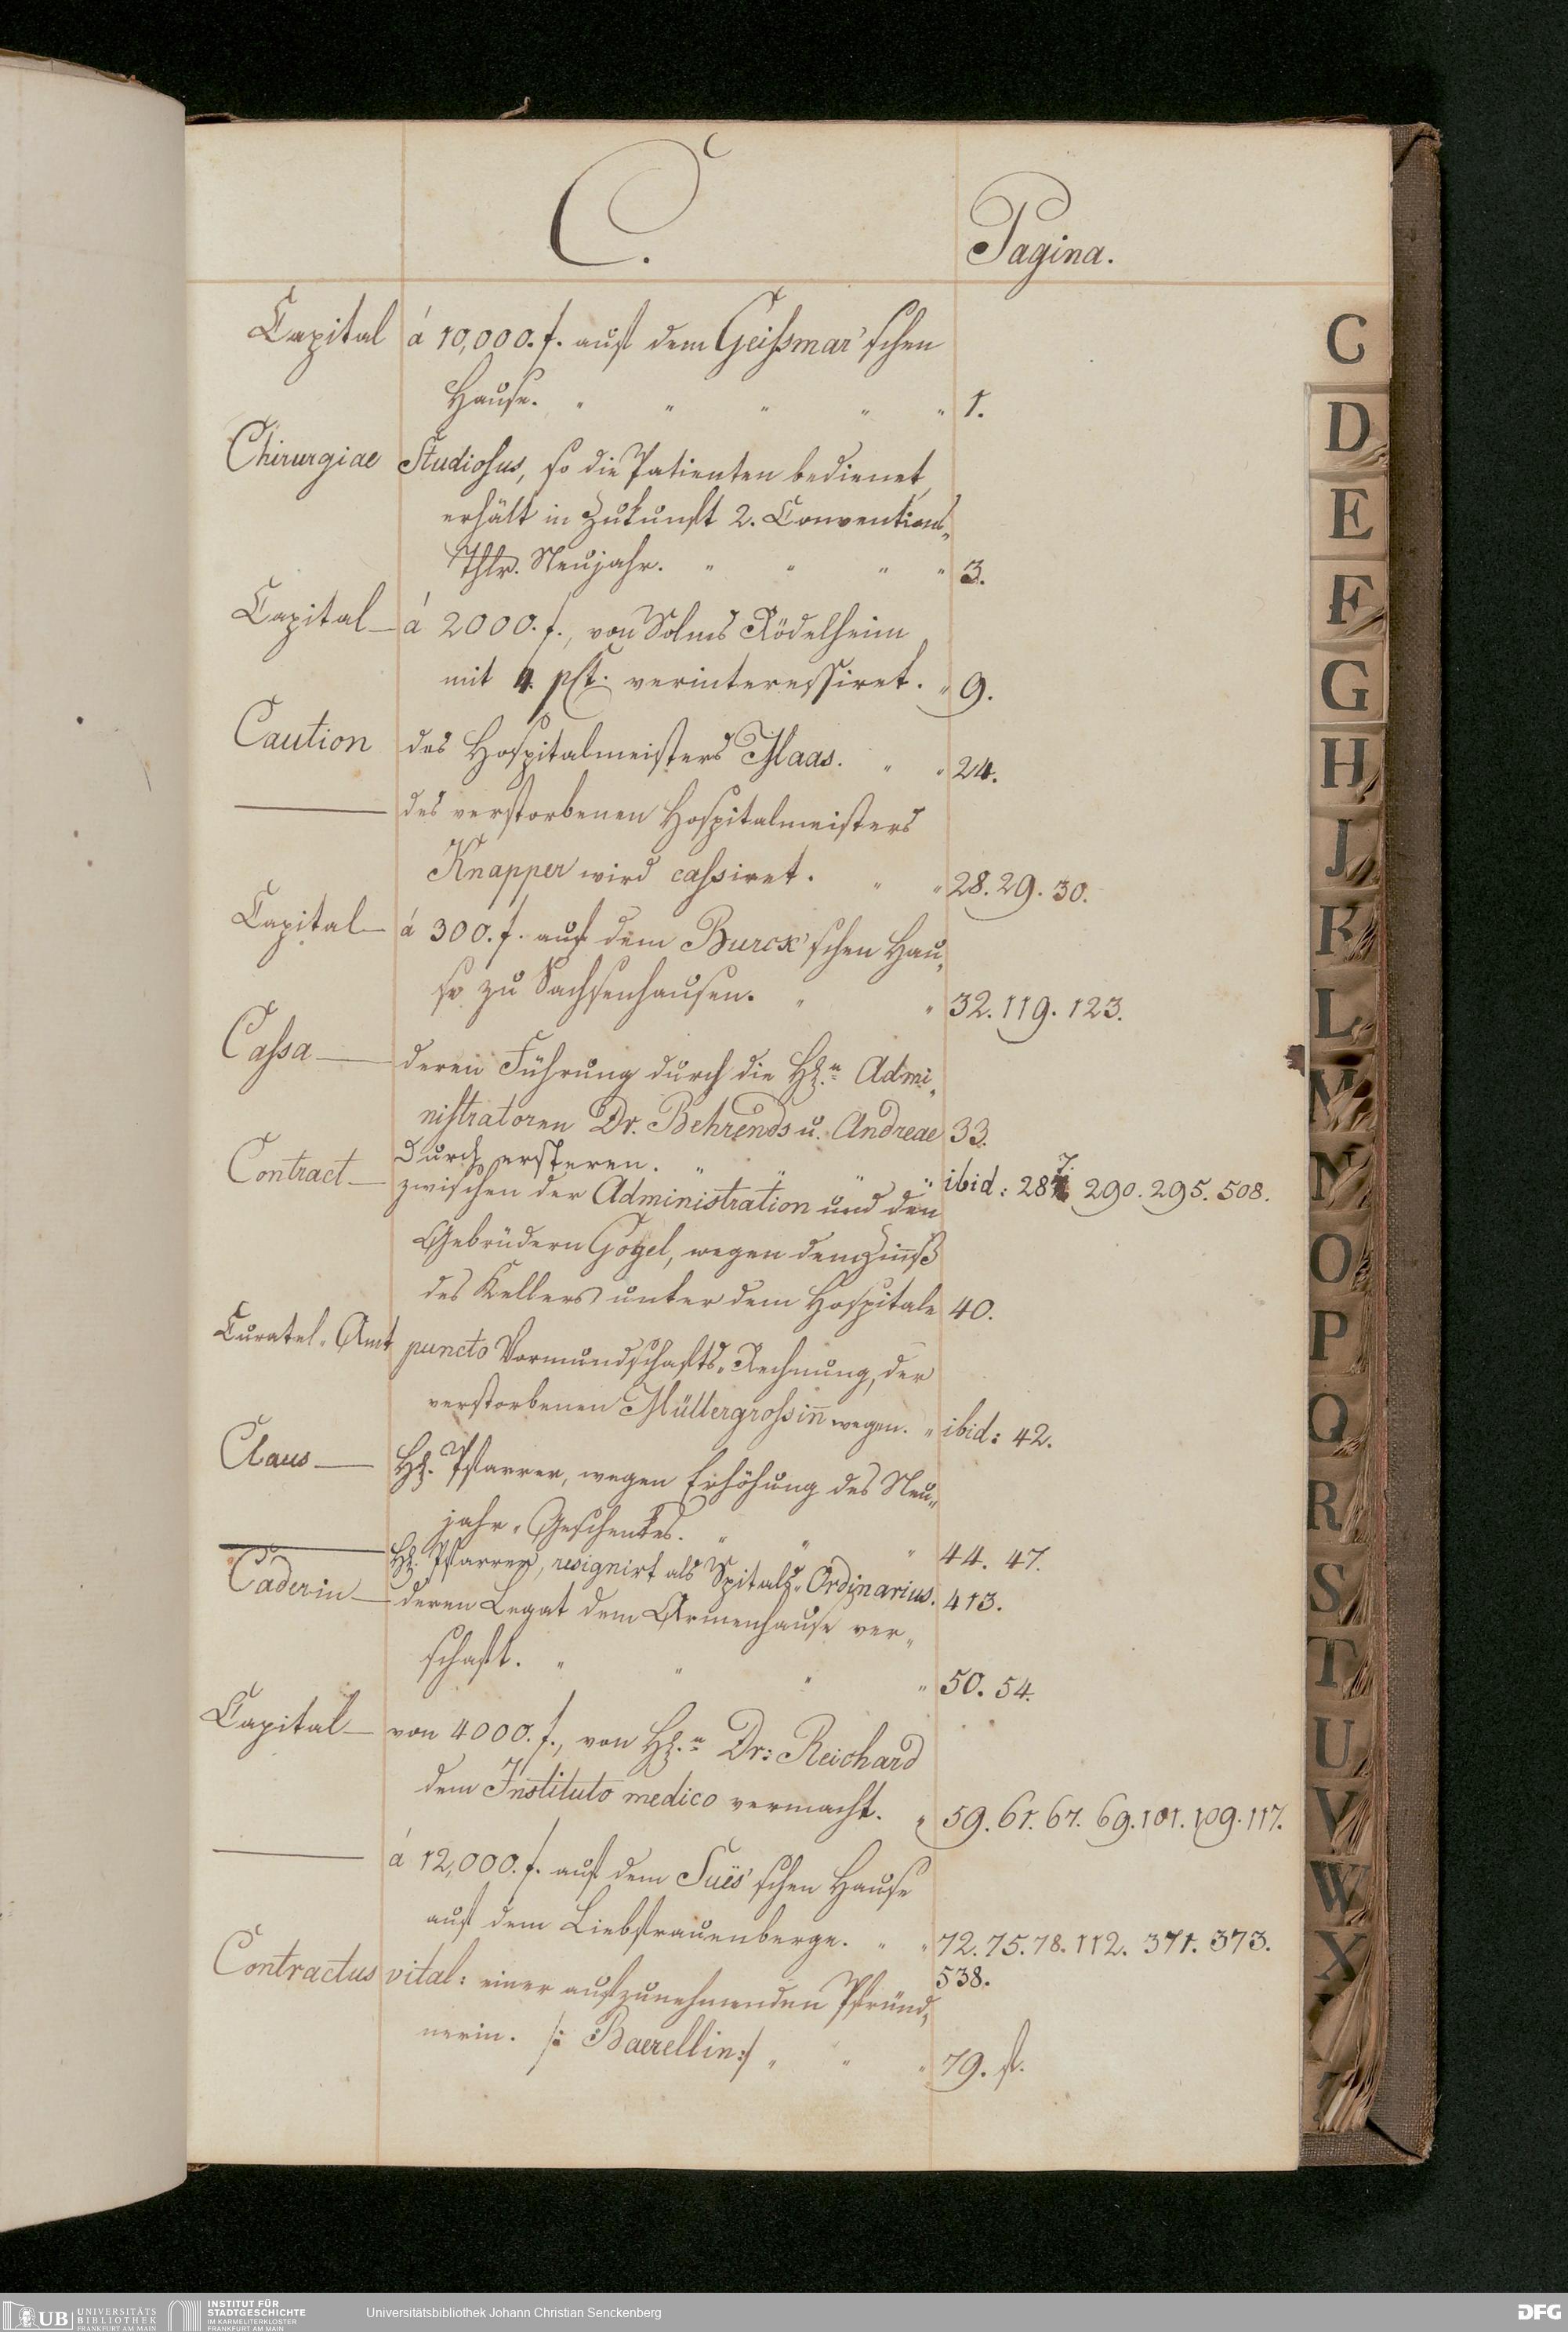 C.
Pagina.
Capital á 10,000. f. auf dem Geißmar'schen
Hause. " " " " " 1.
Chirurgiae Studiosus, so die Patienten bedienet,
erhält in Zukunft 2. Conventions„
Thlr. Neujahr. " " " " 3.
Capital — á 2000. f., von Solms Rödelheim
mit 4. pCt. verinteressiret. " 9.
Caution des Hospitalmeisters Maas. " " 24.
——— des verstorbenen Hospitalmeisters
Knapper wird cassiret. " " 28. 29. 30.
Capital — á 300. f. auf dem Burck'schen Hau„
se zu Sachsenhausen. " " 32. 119. 123.
Cassa — deren Führung durch die HH.n Admi„
nistratoren Dr. Behrends u. Andreae 33.
Durch ersteren. " " " " ibid: 287. 290. 295. 508.
Contract — zwischen der Administration und den
Gebrüdern Gogel, wegen dem Zinnß
des Kellers unter dem Hospitale 40.
Curatel-Amt puncto Vormundschafts-Rechnung, der
verstorbenen Müllergroßin wegen. " ibid: 42.
Claus — HH. Pfarrer, wegen Erhöhung des Neu„
jahr-Geschenkes. " " " 44. 47.
——— HH. Pfarrer, resignirt als Spitals-Ordinarius. 413.
Caderin — deren Legat dem Armenhause ver„
schaft. " " " " 50. 54.
Capital — von 4000. f., von HH.n Dr: Reichard
dem Instituto medico vermacht. " 59. 61. 67. 69. 101. 109. 117.
——— á 12,000. f. auf dem Suës'schen Hause
auf dem Liebfrauenberge. " " 72. 75. 78. 112. 371. 373.
538.
Contractus vital: einer aufzunehmenden Pfründ„
nerin. /: Baerellin :/ " " " 79. f.
C
D
E
F
G
H
J
K
L
M
N
O
P
Q
R
S
T
U
V
W
X
UB UNIVERSITÄTS BIBLIOTHEK FRANKFURT AM MAIN
INSTITUT FÜR STADTGESCHICHTE IM KARMELITERKLOSTER FRANKFURT AM MAIN
Universitätsbibliothek Johann Christian Senckenberg
DFG